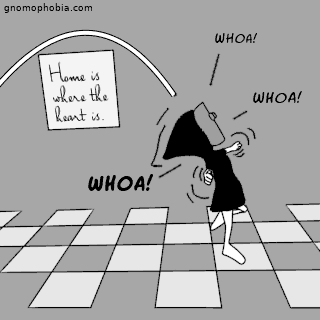 gnomophobia.com
WHOA!
Home is
where the
heart is.
WHOA!
WHOA!